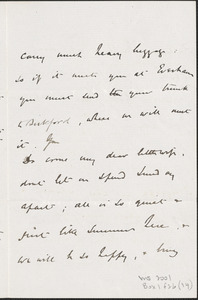 carry much heavy luggage,
so if it meets you at Evesham
you must send the your trunk
to Bickford, where we will meet
it.
Do come my dear little wife,
dont let us spend Sunday
apart; all is so quiet &
just like summer here, &
we will be so happy, &